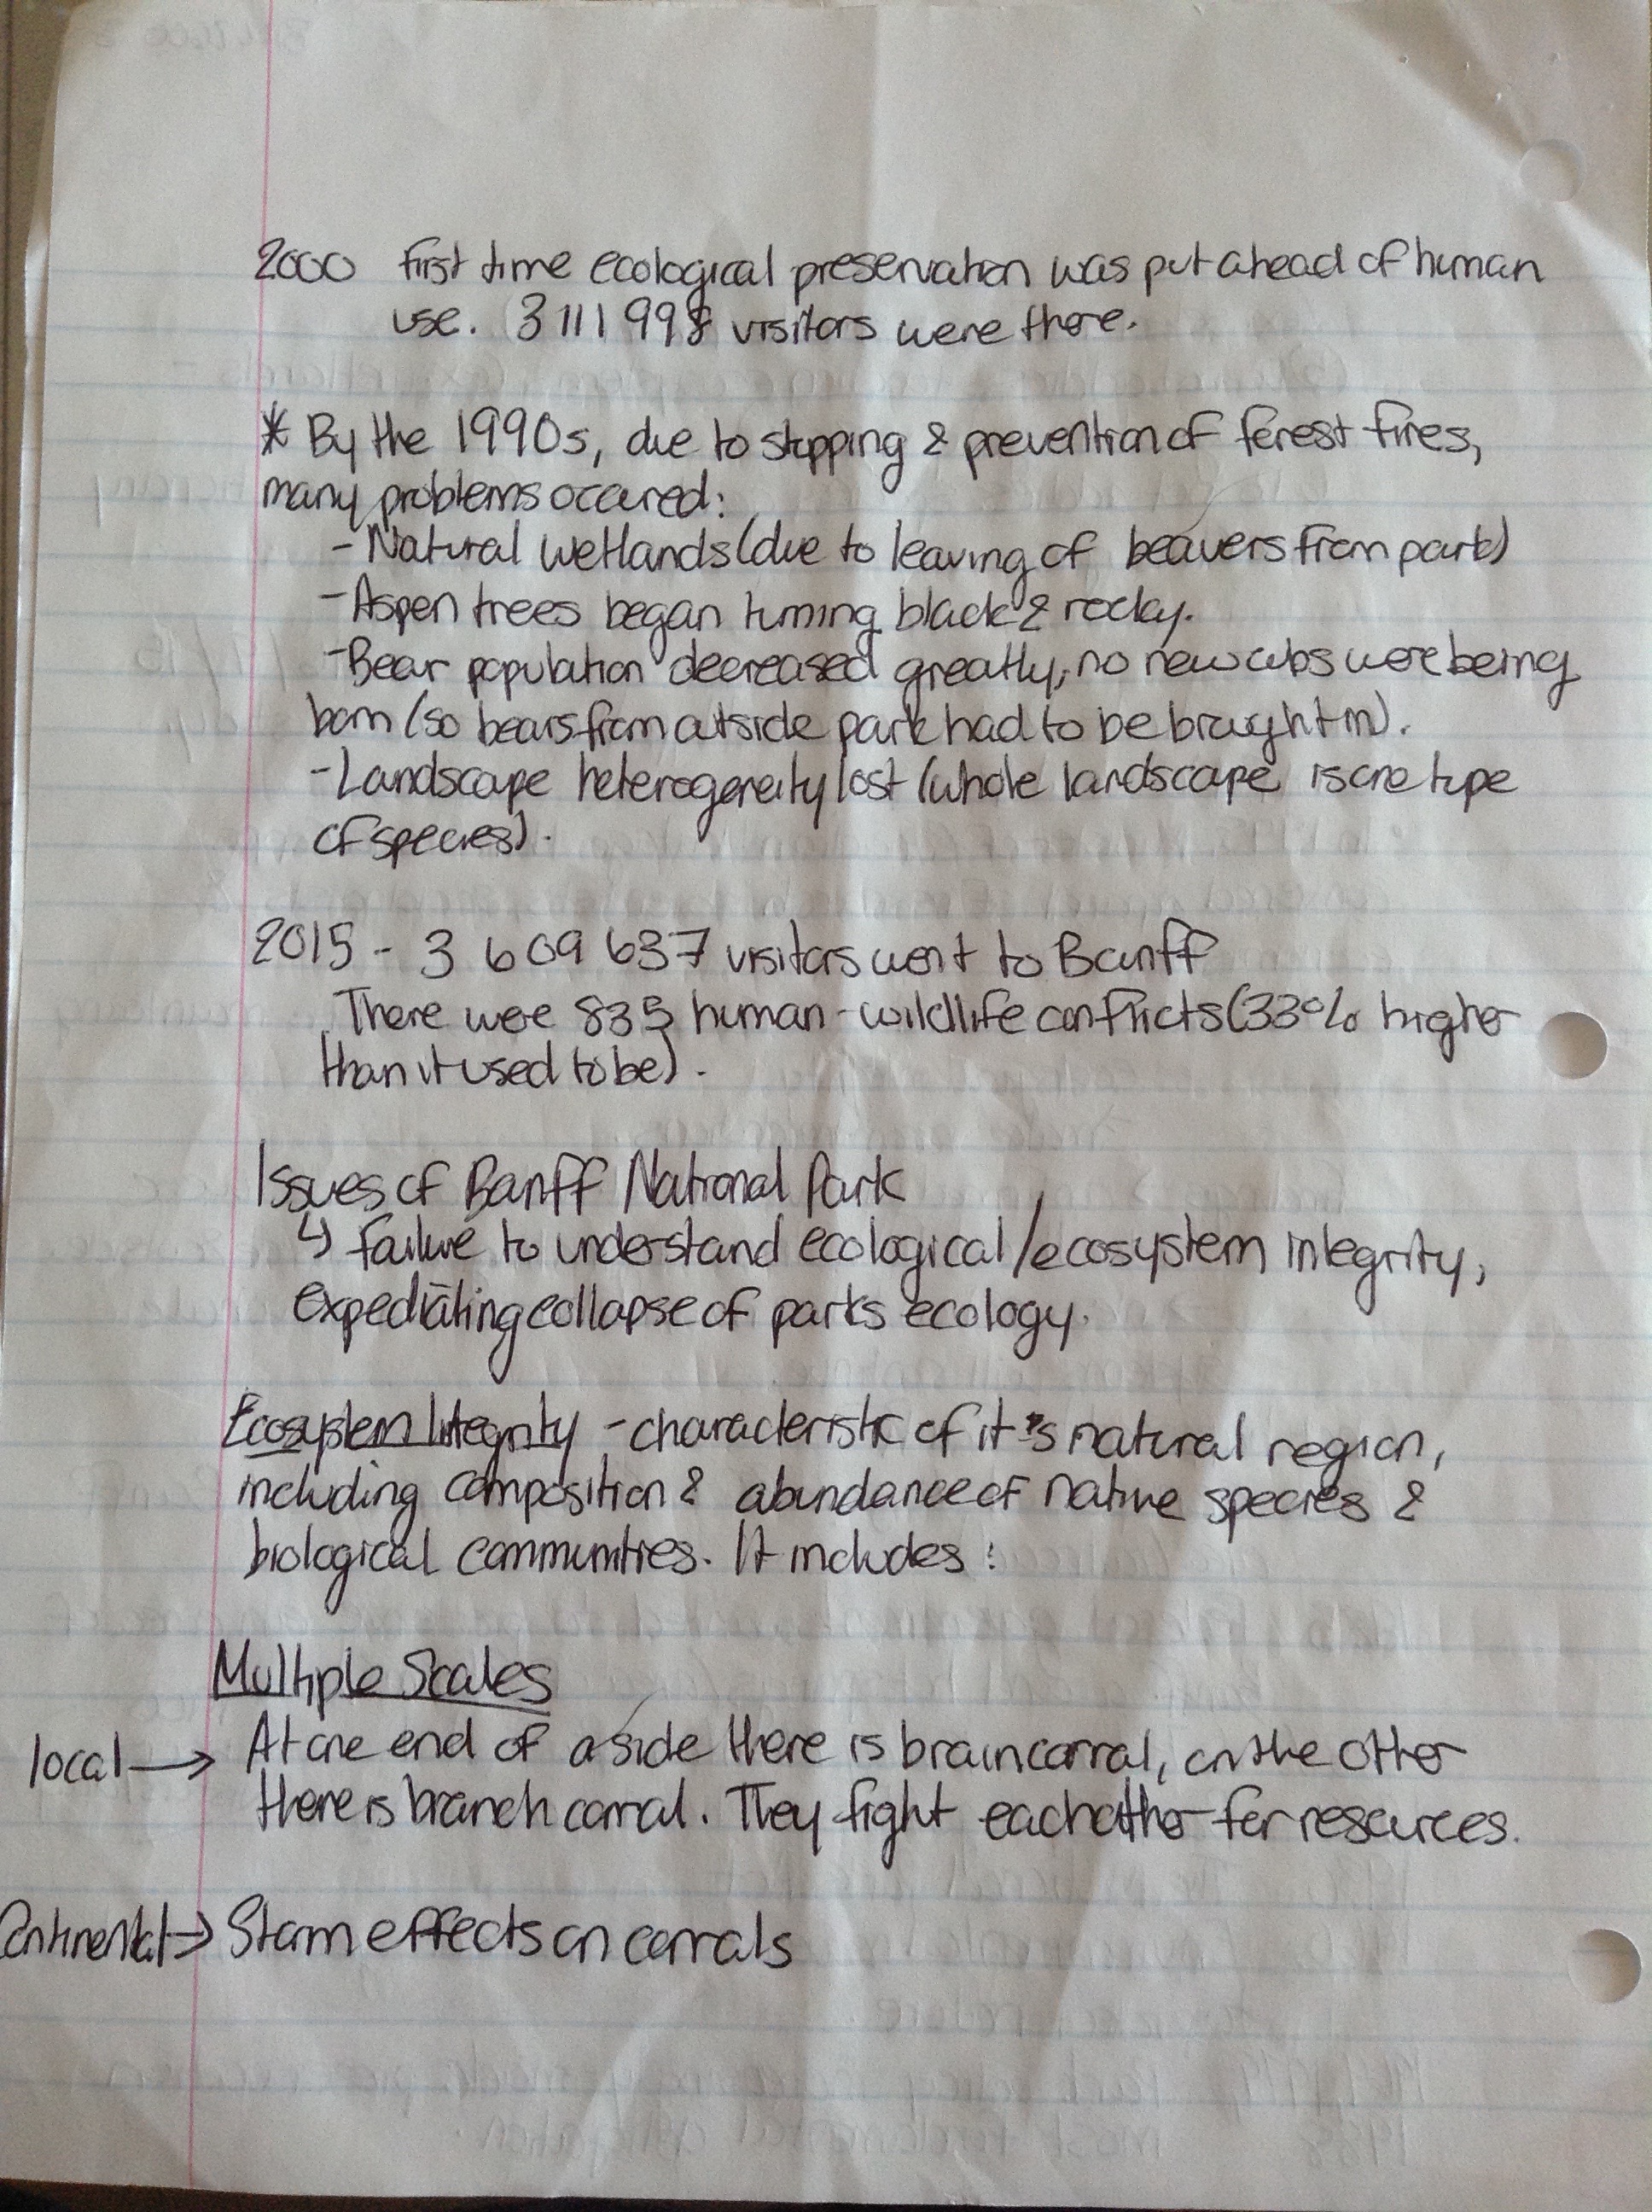 2000 first time ecological preservation was put ahead of human
use. 3 111 998 visitors were there.
* By the 1990s, due to stopping & prevention of forest fires,
many problems occured:
- Natural wetlands (due to leaving of beavers from park)
- Aspen trees began turning black & rocky.
- Bear population decreased greatly, no new cubs were being
born (so bears from outside park had to be braught in).
- Landscape heterogeneity lost (whole landscape is one type
of species).
2015 - 3 609 637 visitors went to Banff
There were 835 human-wildlife conflicts (33% higher
than it used to be).
Issues of Banff National Park
↳ failure to understand ecological/ecosystem integrity,
expediating collapse of parks ecology.
Ecosystem Integrity - characteristic of it's natural region,
including composition & abundance of native species &
biological communities. It includes:
Multiple Scales
local → At one end of a side there is brain corral, on the other
there is branch corral. They fight eachother for resources.
Continental → Storm effects on corrals